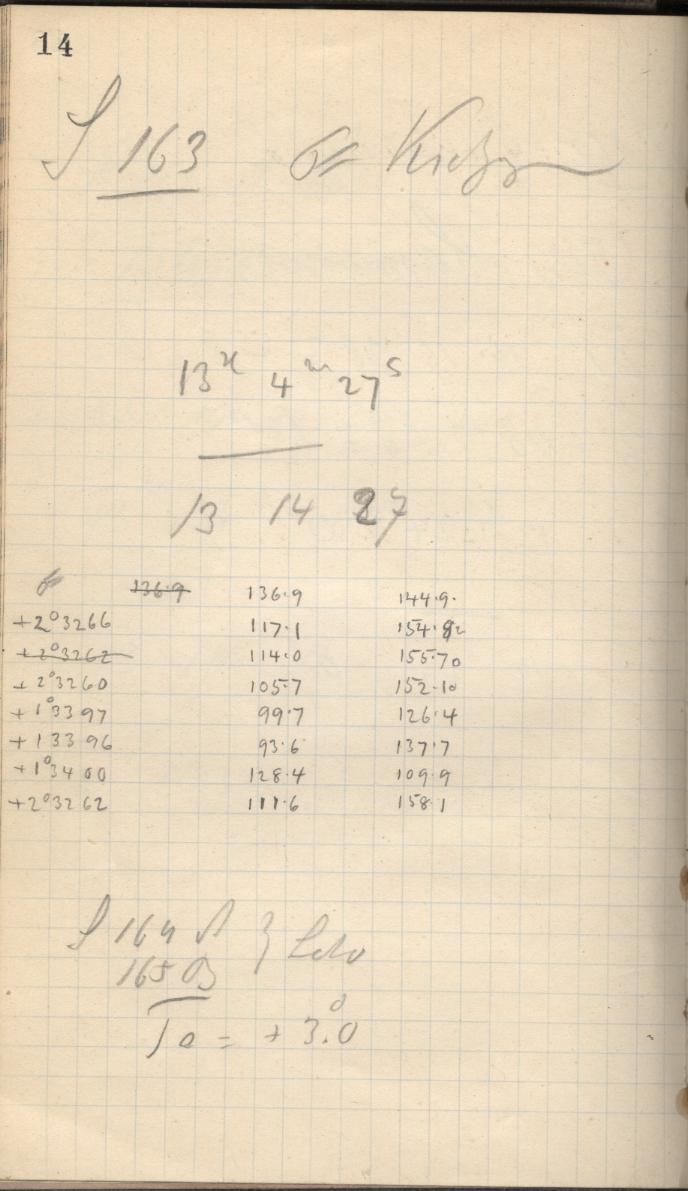 14
S 163
13h 4m 27s
13 14 27
136.9 136.9 144.9.
+2°3266 117.1 154.82
+2°3262 114.0 155.70
+2°3260 105.7 152.10
+1°3397 99.7 126.4
+1 3396 93.6 137.7
+1°3400 128.4 109.9
+2°3262 111.6 158.1
S 164 A
165 B
= +3.0°